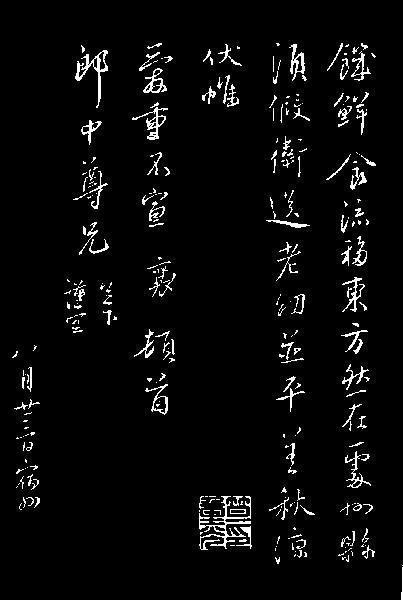 鮮食流移東方然在處州縣
須假衛送老幼並平善秋涼
伏惟
愛重不宣襄頓首
郎中尊兄
足下
謹空
八月廿三日宿州